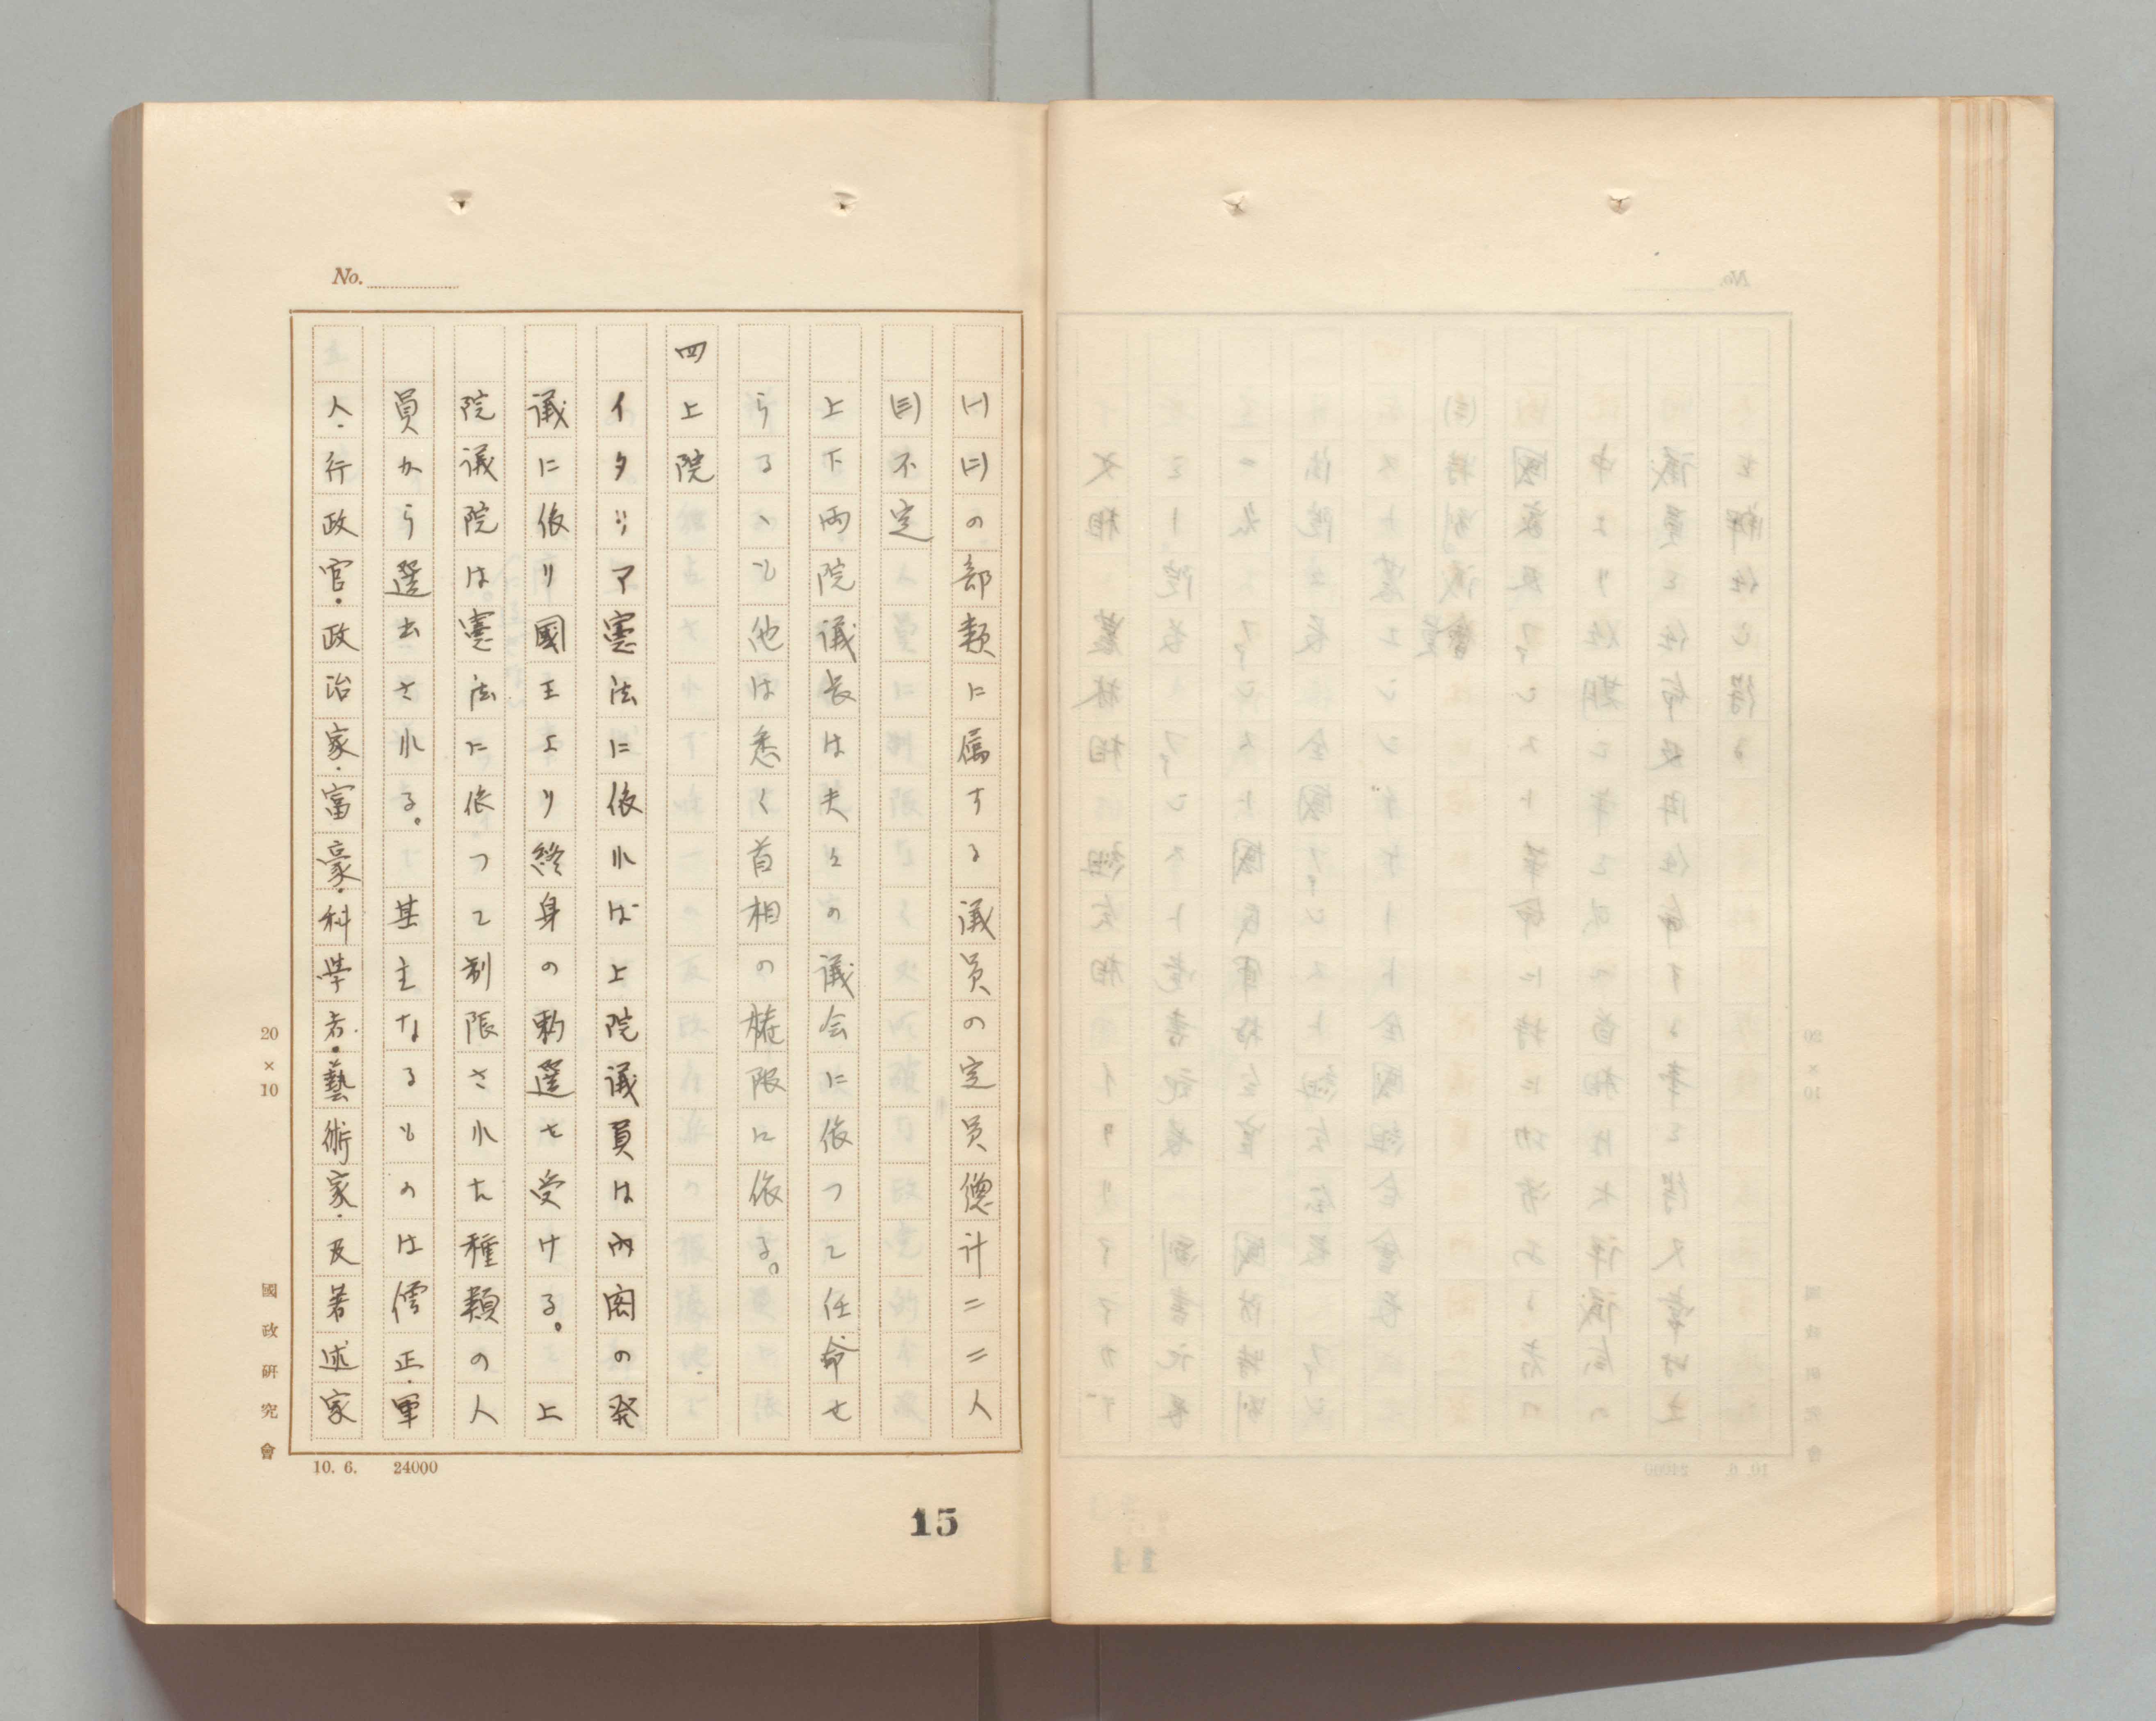 No.
(一)(二)の部類に属する議員の定員總計二二人
(三)不定
上下両院議長は夫々の議会に依つて任命せ
らるゝも他は悉く首相の権限に依る。
四上院
イタリア憲法に依れば上院議員は内閣の発
議に依り國王より終身の勅選を受ける。上
院議院は憲法に依つて制限された種類の人
員から選出される。其主なるものは僧正・軍
人・行政官・政治家・富豪・科学者・藝術家・及著述家
20×10
國政研究會
10. 6. 24000
15